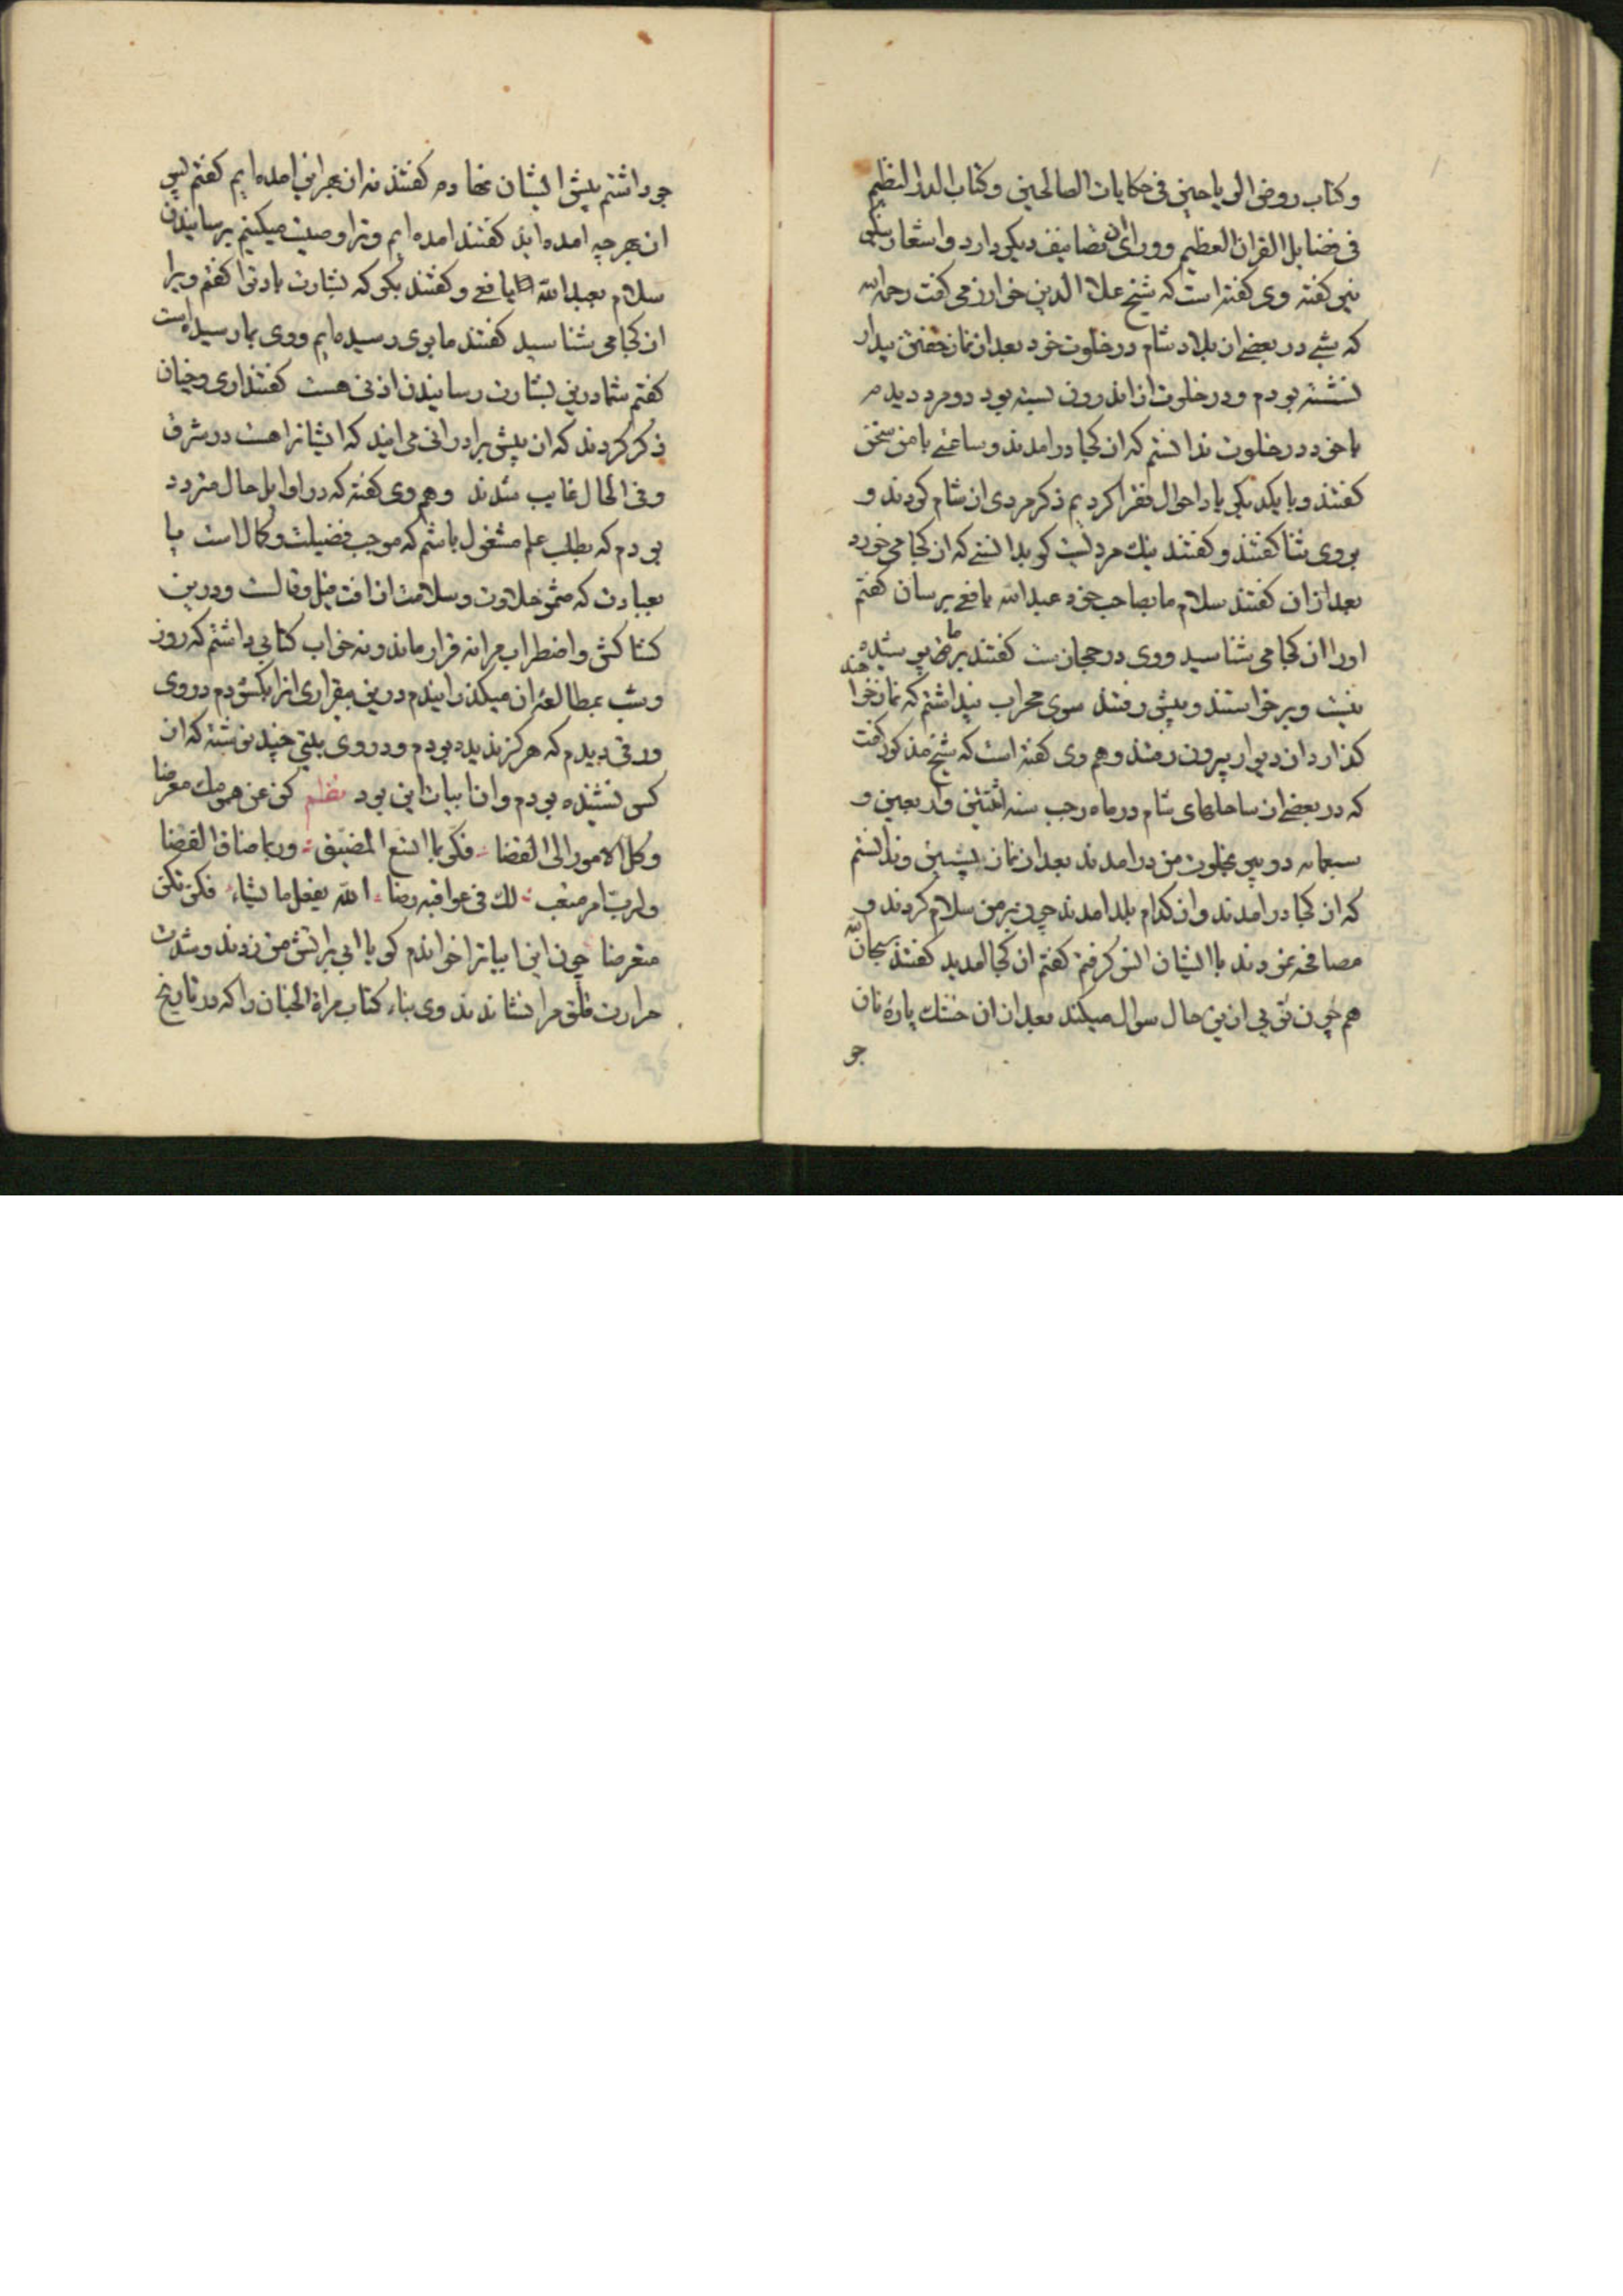 وکتاب روض الریاحین فی حکایات الصالحین وکتاب الدر النظیم
فی فضایل القران العظیم وورای ان تصانیف دیکر دارد واشعار نیکو
نیز کفته وی کفته است که شیخ علاء الدین خوارزمی کفت رحمه الله
که شبی در بعضی از بلاد شام در خلوت خود بعد از نماز خفتن بیدار
نشسته بودم ودر خلوت از اندرون بسته بود دو مرد دیدم
با خود در خلوت ندانستم که از کجا درامدند وساعتی با من سخن
کفتند وبا یکدیکر یاد احوال فقرا کردیم ذکر مردی از شام کردند و
بروی ثنا کفتند وکفتند نیک مردیست کر بدانستی که از کجا می خورد
بعد ازان کفتند سلام ما بصاحب خود عبدالله یافعی برسان کفتم
اورا از کجا می شناسید ووی در حجازست کفتند بر ما پوشیده
نیست وبرخواستند وپیش رفتند سوی محراب پنداشتم که نماز خواهند
کذارد از دیوار بیرون رفتند وهم وی کفته است که شیخ مذکور کفت
که در بعضی از ساحلهای شام در ماه رجب سنه اثنتین واربعین و
سبعمایه دو پیر بخلوت من درامدند بعد از نماز پیشین وندانستم
که از کجا درامدند واز کدام بلد امدند چون بر من سلام کردند و
مصافحه نمودند با ایشان انس کرفتم کفتم از کجا امدید کفتند سبحان الله
هم چون تویی ازین حال سوال میکند بعد ازان خشک پارۀ نان
جو
جو داشتم پیش ایشان نهادم کفتند نه از بهر این امده ایم کفتم پس
از بهر چه امده اید کفتند امده ایم وترا وصیت میکنیم برسانیدن
سلام بعبدالله یافعی وکفتند بکو که بشارت باد ترا کفتم ویرا
از کجا می شناسید کفتند ما بوی رسیده ایم ووی بما رسیده است
کفتم شما را درین بشارت رسانیدن اذنی هست کفتند اری وچنان
ذکر کردند که از پیش برادرانی می ایند که ایشانرا هست در شرق
وفی الحال غایب شدند وهم وی کفته که در اوایل حال متردد
بودم که بطلب علم مشغول باشم که موجب فضیلت وکمال است یا
بعبادت که مثمر حلاوت وسلامت از افت قیل وقالست ودرین
کشاکش واضطراب مرا نه قرار ماند ونه خواب کتابی داشتم که روز
وشب بمطالعه ان میکذرانیدم درین بیقراری انرا بکشودم در وی
ورقی دیدم که هرکز ندیده بودم ودر وی بیتی چند نوشته که از
کس نشنیده بودم وان ابیات این بود نظم کن عن همومک معرضا
وکل الامور الی القضا فلربما اتسع المضیق وربما ضاق الفضا
ولرب امر متعب لک فی عواقبه رضا الله یفعل ما یشاء فلا تکن
متعرضا چون این ابیاترا خواندم کویا ابی بر اتش من زدند وشدت
حرارت قلق مرا نشاندند وی بناء کتاب مراة الجنان را که در تاریخ